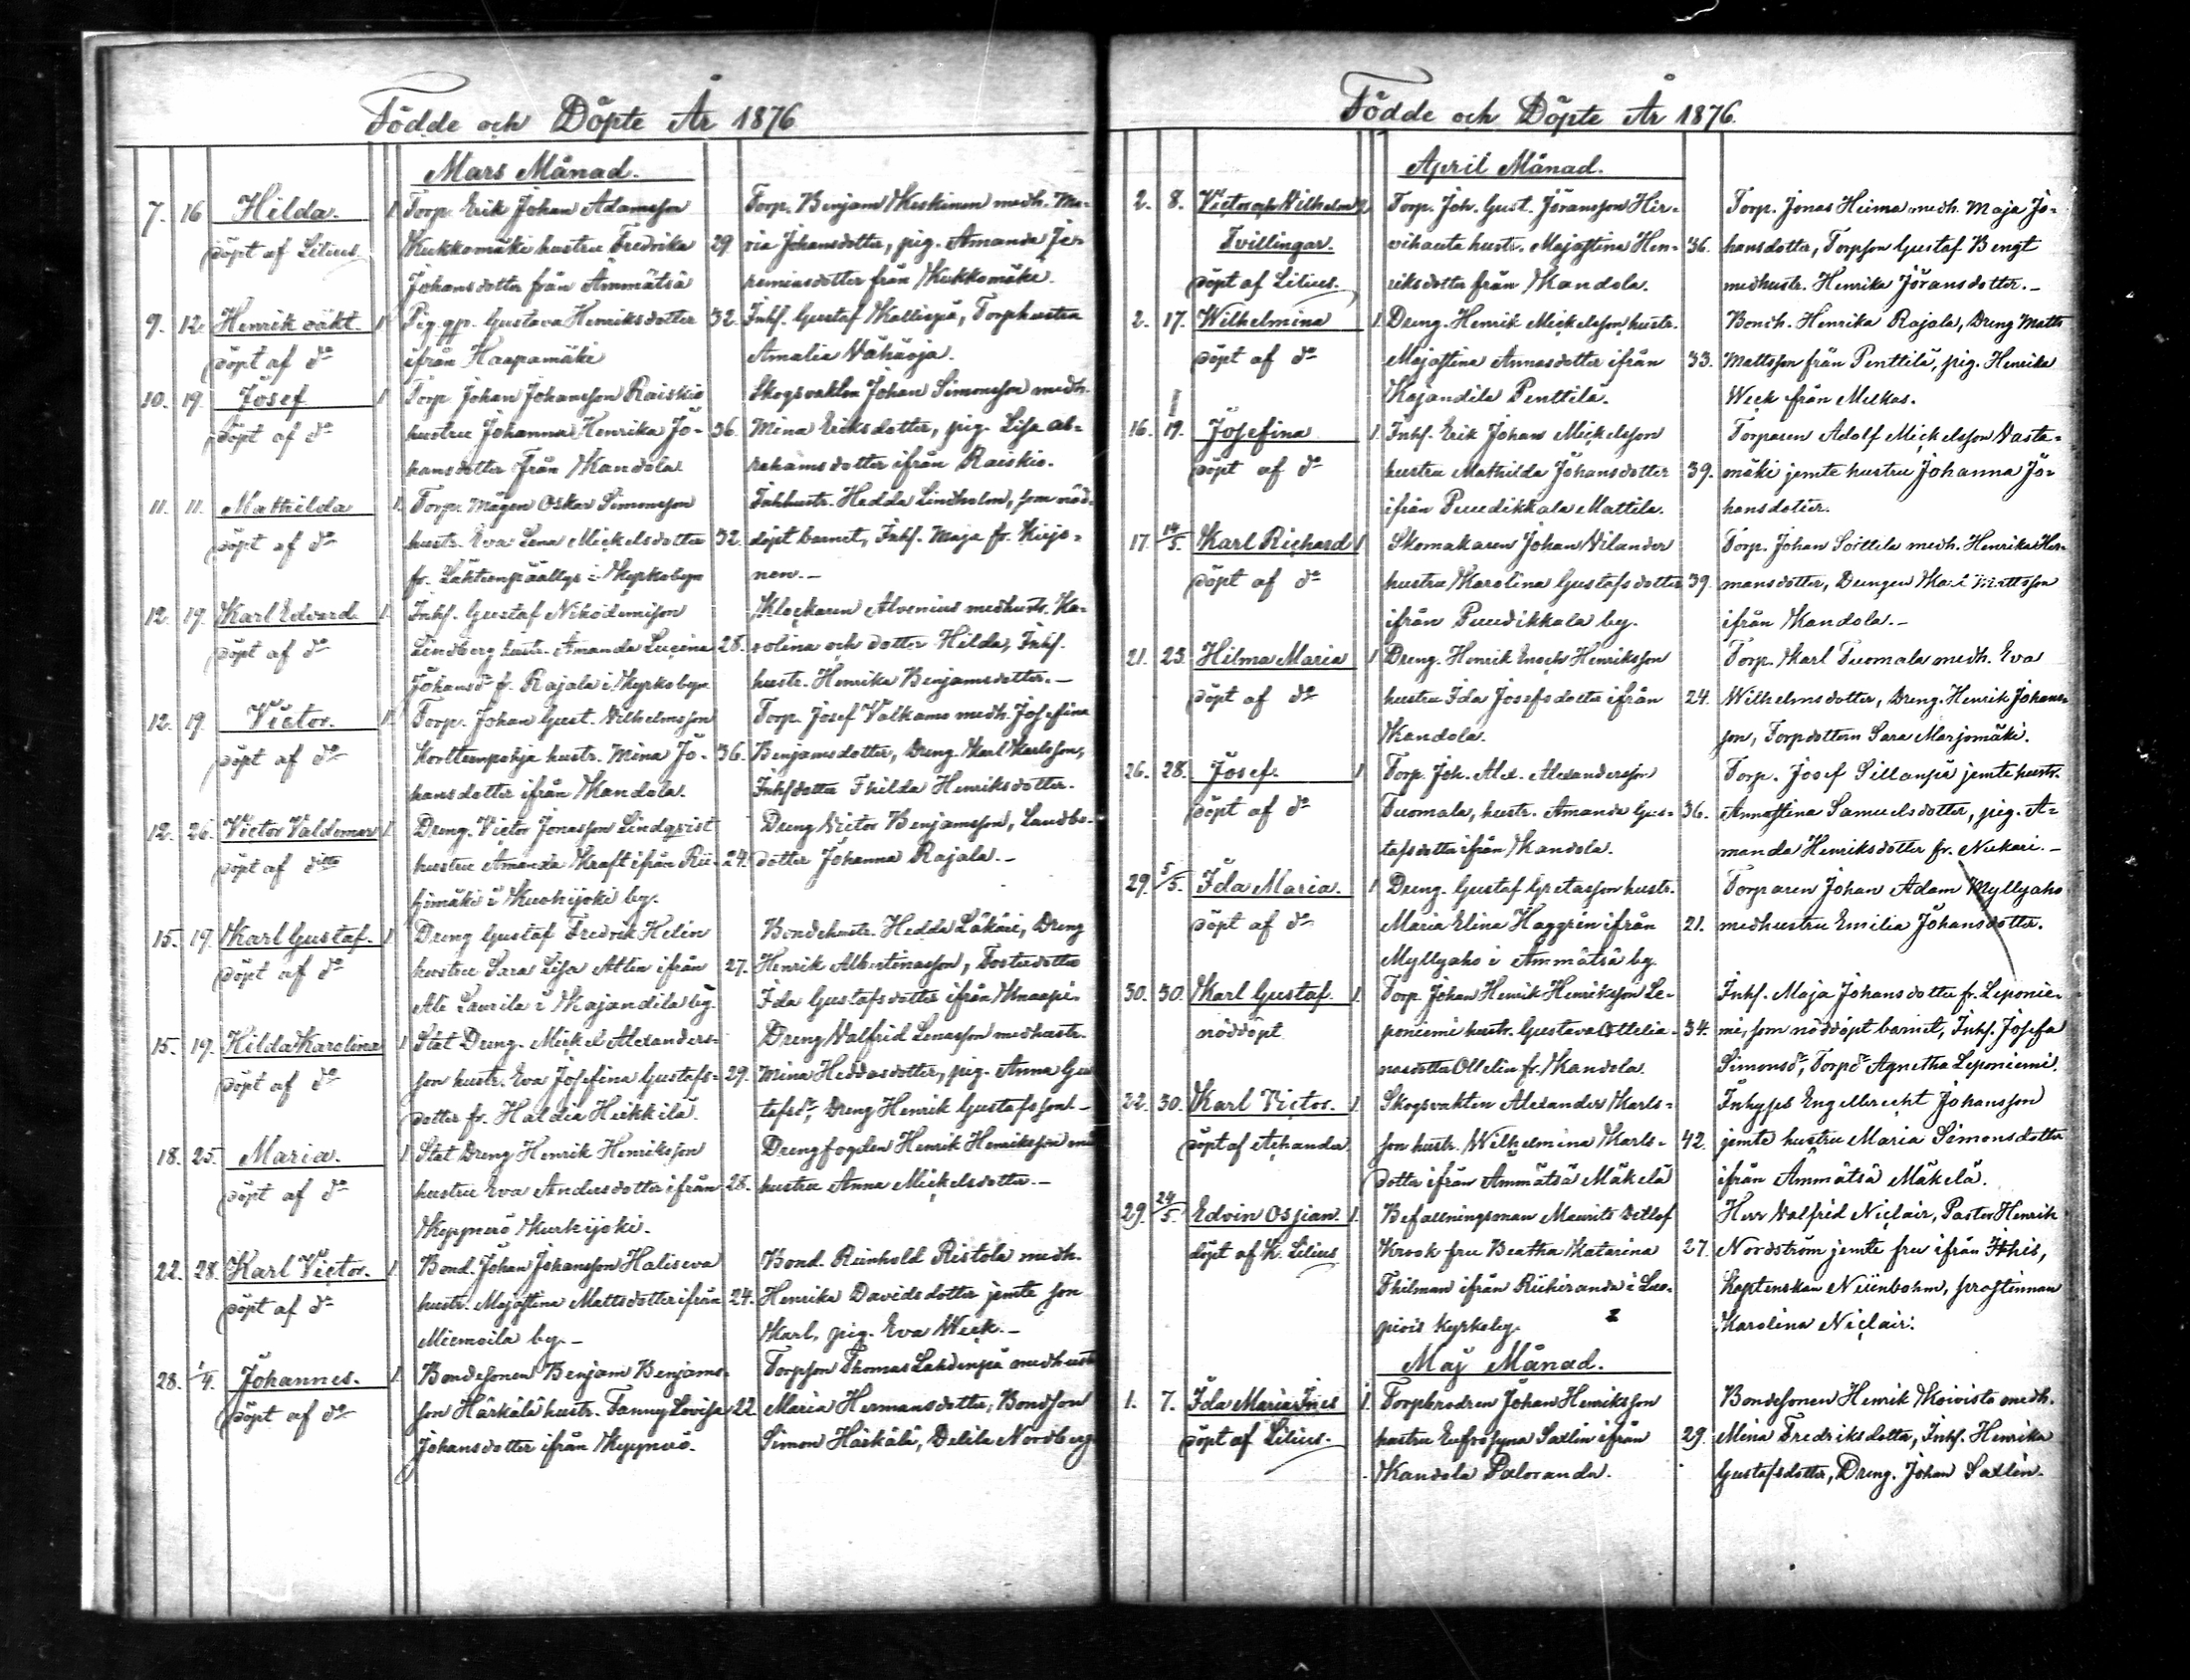 Födde och Döpte År 1876
Mars Månad.
7. 16 Hilda. 1 Torp. Erik Johan Adamsson Torp. Benjam Keskinen medh. Ma-
döpt af Lilius Kukkomäki hustru Fredrika 29 ria Johansdotter, pig. Amanda Je-
Johansdotter från Ämmätsä remiasdotter från Kukkomäke.
9. 12. Henrik oäkt. 1 Pig. gp. Gustava Henriksdotter 32. Inhs. Gustaf Kallioja, Torphustru
döpt af do ifrån Haapamäki Amalia Vähäoja.
10. 19. Josef 1 Torp. Johan Johansson Raiskio Skogsvakten Johan Simonsson medh.
döpt af do hustru Johanna Henrika Jo- 36. Mina Eriksdotter, pig. Lisa Ab-
hansdotter från Kandola. rahamsdotter ifrån Raiskio.
11. 11. Mathilda 1. Torp. mågen Oskar Simonsson Inhhustr. Hedda Lindholm, som nöd-
döpt af do hustr. Eva Lena Mickelsdotter 32. döpt barnet, Inhs. Maja fr.
fr. i Kyrkobyn nen.-
12. 19. Karl Edvard 1. Inhs. Gustaf Nikodemsson Klockaren Alvenius medhustr. Ka-
döpt af do Lindberg hustr. Amanda Lucina 28. rolina och dotter Hilda, Inhs.
Johansdr fr. Rajala i Kyrkobyn hustr. Henrika Benjamsdotter.-
12. 19. Victor. 1. Torp. Johan Gust. Vilhelmsson Torp. Josef Valkama medh. Josefina
döpt af do Korttempohja hustr. Mina Jo- 36. Benjamsdotter, Dreng. Karl Karlsson,
hansdotter ifrån Kandola. Inhsdotter Thilda Henriksdotter.
12. 26. Victor Valdemar 1. Dreng. Victor Jonasson Lindqvist Dreng Victor Benjamsson, Landbo-
döpt af ditto hustru Amanda Kraft ifrån Rii- 24. dotter Johanna Rajala.-
himäki i Kuohijoki by.
15. 19. Karl Gustaf. 1 Dreng Gustaf Fredrik Helin Bondehustr. Hedda Läkäri, Dreng
döpt af do hustru Sara Lisa Atlin ifrån 27. Henrik Albertinasson, Fosterdotter
Ali Laurila i Kajandila by. Ida Gustafsdotter ifrån Knaapi.
15. 19. Hilda Karolina 1 Stat Dreng. Mickel Alexanders- Dreng Valfrid Lenasson medhustr.
döpt af do son hustr. Eva Josefina Gustafs- 29. Mina Heddasdotter, pig. Anna Gus
dotter fr. Haldia Heikkilä. tafsdr, Dreng Henrik Gustafsson.-
18. 25. Maria. 1 Stat Dreng Henrik Henriksson Drengfogden Henrik Henriksson med
döpt af do hustru Eva Andersdotter ifrån 28. hustru Anna Mickelsdotter.-
Keppnerö Kurkijoki.
22. 28. Karl Victor. 1. Bond. Johan Johansson Haliseva Bond. Reinhold Ristola medh.
döpt af do hustr. Majastina Mattsdotter ifrån 24. Henrika Davidsdotter jemte son
Miemoila by.- Karl, pig. Eva Week.-
28. 1/4. Johannes. 1. Bondesonen Benjam Benjams- Torpson Thomas Lahdenpä medhustr
döpt af do son Härkälä hustr. Fanny Lovisa 22 Maria Hermansdotter, Bondson
Johansdotter ifrån Keppnerö. Simon Härkälä, Delila Nordberg
Födde och Döpte År 1876.
April Månad.
2. 8. Victor och Vilhelm 2 Torp. Joh. Gust. Jöransson Hir- Torp. Jonas Heima medh. Maja Jo-
Tvillingar. vihauta hustr. Majastina Hen- 36. hansdotter, Torpson Gustaf Bengt
döpt af Lilius. riksdotter från Kandola. medhustr. Henrika Jöransdotter.-
2. 17. Wilhelmina 1. Dreng. Henrik Mickelsson hustr. Bondh. Henrika Rajala, Dreng Matts
döpt af do Majastina Annasdotter ifrån 33. Mattsson från Penttilä, pig. Henrika
Kajandila Penttilä. Week från Melkas.
16. 19. Josefina 1. Inhs. Erik Johan Mickelsson Torparen Adolf Mickelsson Vasta-
döpt af do hustru Mathilda Johansdotter 39. mäki jemte hustru Johanna Jo-
ifrån Puudikkala Mattila. hansdotter.
17. 14/5. Karl Richard 1 Skomakaren Johan Vilander Torp. Johan Soittila medh. Henrika Her-
döpt af do hustru Karolina Gustafsdotter 39. mansdotter, Drengen Karl Mattsson
ifrån Puudikkala by. ifrån Kandola.-
21. 23. Hilma Maria 1 Dreng. Henrik Enoch Henriksson Torp. Karl Tuomala medh. Eva
döpt af do hustru Ida Josefsdotter ifrån 24. Wilhelmsdotter, Dreng. Henrik Johans-
Kandola. son, Torpdottern Sara Marjomäki.
26. 28. Josef. 1 Torp. Joh. Alex. Alexandersson Torp. Josef Sillanpä jemte hustr.
döpt af do Tuomala, hustr. Amanda Gus- 36. Annastina Samuelsdotter, pig. A-
tafsdotter ifrån Kandola. manda Henriksdotter fr. Niukari.-
29. 5/5. Ida Maria. 1 Dreng. Gustaf Gretasson hustr. Torparen Johan Adam Myllyaho
döpt af do Maria Elina Haggrén ifrån 21. medhustru Emilia Johansdotter.
Myllyaho i Ämmätsä by.
30. 30. Karl Gustaf. 1. Torp. Johan Henrik Henriksson Le- Inhs. Maja Johansdotter fr. Leponie-
nöddöpt poniemi hustr. Gustava Ottelia- 34. mi, som nöddöpt barnet, Inhs. Josefa
nasdotter Ollelin fr. Kandola. Simonsdr, Torpdr Agnetha Leponiemi.
22. 30. Karl Victor. 1. Skogsvakten Alexander Karls- Inhyses Engelbrecht Johansson
döpt af Achander son hustr. Wilhelmina Karls- 42. jemte hustru Maria Simonsdotter
dotter ifrån Ämmätsä Mäkelä ifrån Ämmätsä Mäkelä.
29. 24/5. Edvin Ossian. 1. Befallningsman Maurits Detlof Herr Valfrid Niclair, Pastor Henrik
döpt af K. Lilius Krook fru Beatha Katarina 27. Nordström jemte fru ifrån Ithis,
Thilman ifrån Riihiranda i Luo- Kaptenskan Neiinbohm, prostinnan
piois Kyrkoby. Karolina Niclair.
Maj Månad.
1. 7. Ida Maria Ines 1. Torpbrodren Johan Henriksson Bondesonen Henrik Koivisto medh.
döpt af Lilius. hustru Eufrosyna Saxlin ifrån 29. Mina Fredriksdotter, Inhs. Henrika
Kandola Paloranda. Gustafsdotter, Dreng. Johan Saxlin.